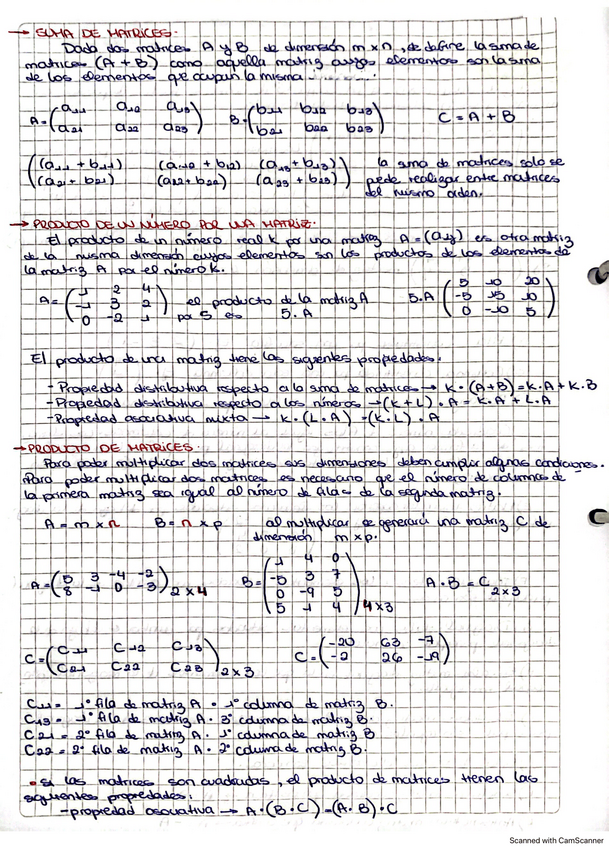 → SUMA DE MATRICES.
Dada dos matrices A y B de dimensión m x n, se define la suma de
matrices (A + B) como aquella matriz cuyos elementos son la suma
de los elementos que ocupan la misma
A = (a₁₁ a₁₂ a₁₃) B = (b₁₁ b₁₂ b₁₃) C = A + B
(a₂₁ a₂₂ a₂₃) (b₂₁ b₂₂ b₂₃)
((a₁₁ + b₁₁) (a₁₂ + b₁₂) (a₁₃ + b₁₃)) la suma de matrices solo se
((a₂₁ + b₂₁) (a₂₂ + b₂₂) (a₂₃ + b₂₃)) puede realizar entre matrices
del mismo orden.
→ PRODUCTO DE UN NÚMERO POR UNA MATRIZ.
El producto de un número real k por una matriz A = (aᵢⱼ) es otra matriz
de la misma dimensión cuyos elementos son los productos de los elementos de
la matriz A por el número k.
A = (1 2 4) el producto de la matriz A 5.A (5 10 20)
(-1 3 2) por 5 es 5.A (-5 15 10)
(0 -2 1) (0 -10 5)
El producto de una matriz tiene las siguientes propiedades.
- Propiedad distributiva respecto a la suma de matrices → K · (A+B) = K.A + K.B
- Propiedad distributiva respecto a los números → (K + L) . A = K.A + L.A
- Propiedad asociativa mixta → K · (L . A) = (K . L) . A
→ PRODUCTO DE MATRICES.
Para poder multiplicar dos matrices sus dimensiones deben cumplir algunas condiciones.
Para poder multiplicar dos matrices es necesario que el número de columnas de
la primera matriz sea igual al número de filas de la segunda matriz.
A = m x n B = n x p al multiplicar se generará una matriz C de
dimensión m x p.
A = (5 3 -4 -2) B = (1 4 0) A · B = C 2x3
(8 -1 0 -3) 2 x 4 (-5 3 7)
(0 -9 5)
(5 1 4) 4x3
C = (C₁₁ C₁₂ C₁₃) C = (-20 63 -7)
(C₂₁ C₂₂ C₂₃) 2x3 (-2 26 -19)
C₁₁ = 1º fila de matriz A · 1º columna de matriz B.
C₁₃ = 1º fila de matriz A · 3º columna de matriz B.
C₂₁ = 2º fila de matriz A · 1º columna de matriz B
C₂₂ = 2º fila de matriz A · 2º columna de matriz B.
• Si las matrices son cuadradas, el producto de matrices tienen las
siguientes propiedades:
- propiedad asociativa → A · (B · C) = (A · B) · C
Scanned with CamScanner